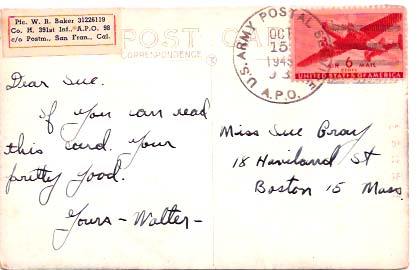 Pfc. W. B. Baker 31226119
Co. M. 391st Inf., A.P.O. 98
c/o Postm., San Fran., Cal.
POST CA
CORRESPONDENCE
U.S. ARMY POSTAL SERVICE
OCT
15
194
A.P.O.
AIR 6 MAIL
CENTS
UNITED STATES OF AMERICA
Dear Sue.
If you can read
this card. your
pretty good.
Yours - Walter -
Miss Sue Gray
18 Haviland St
Boston 15 Mass.